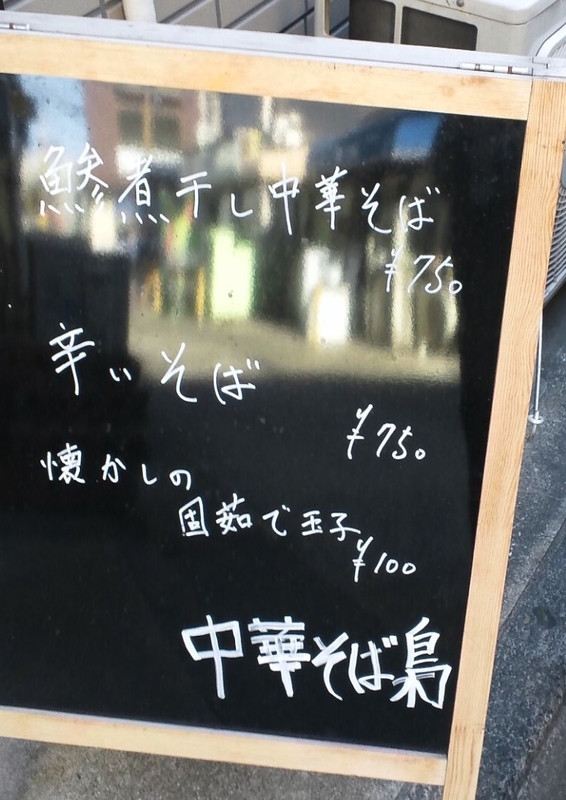 鯵煮干し中華そば
¥750
辛いそば
¥750
懐かしの
固茹で玉子
¥100
中華そば梟